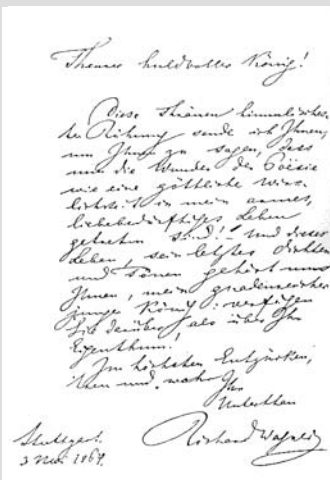 Theurer huldvoller König!
Diese Thränen himmlischer
ter Rührung sende ich Ihnen,
um Ihnen zu sagen, dass
nun die Wunder der Poësie
wie eine göttliche Wirk-
lichkeit in mein armes,
liebebedürftiges Leben
getreten sind! Und dieses
Leben, sein letztes Dichten
und Tönen gehört nun
Ihnen, mein gnadenreicher
junger König: verfügen
Sie darüber als über Ihr
Eigenthum!
Im höchsten Entzücken,
treu und wahr Ihr
Unterthan
Stuttgart.
Richard Wagner
3 Mai 1864.